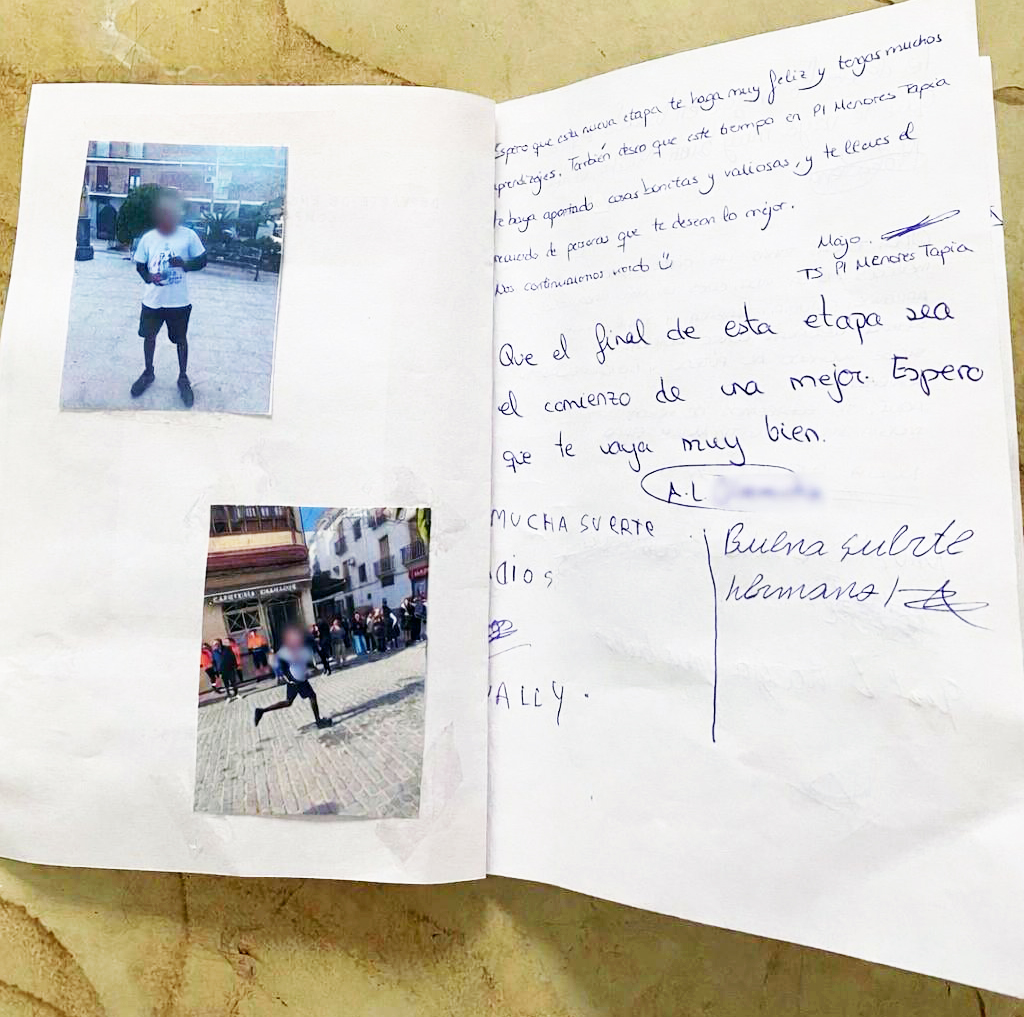 Espero que esta nueva etapa te haga muy feliz y tengas muchos
aprendizajes. También deseo que este tiempo en PI Menores Tapia
te haya aportado cosas bonitas y valiosas, y te lleves el
recuerdo de personas que te desean lo mejor.
Nos continuamos viendo
Mayo.
TS PI Menores Tapia
Que el final de esta etapa sea
el comienzo de una mejor. Espero
que te vaya muy bien.
A.L.
MUCHA SUERTE
DIOS
ALLY.
Buena suerte
hermano!